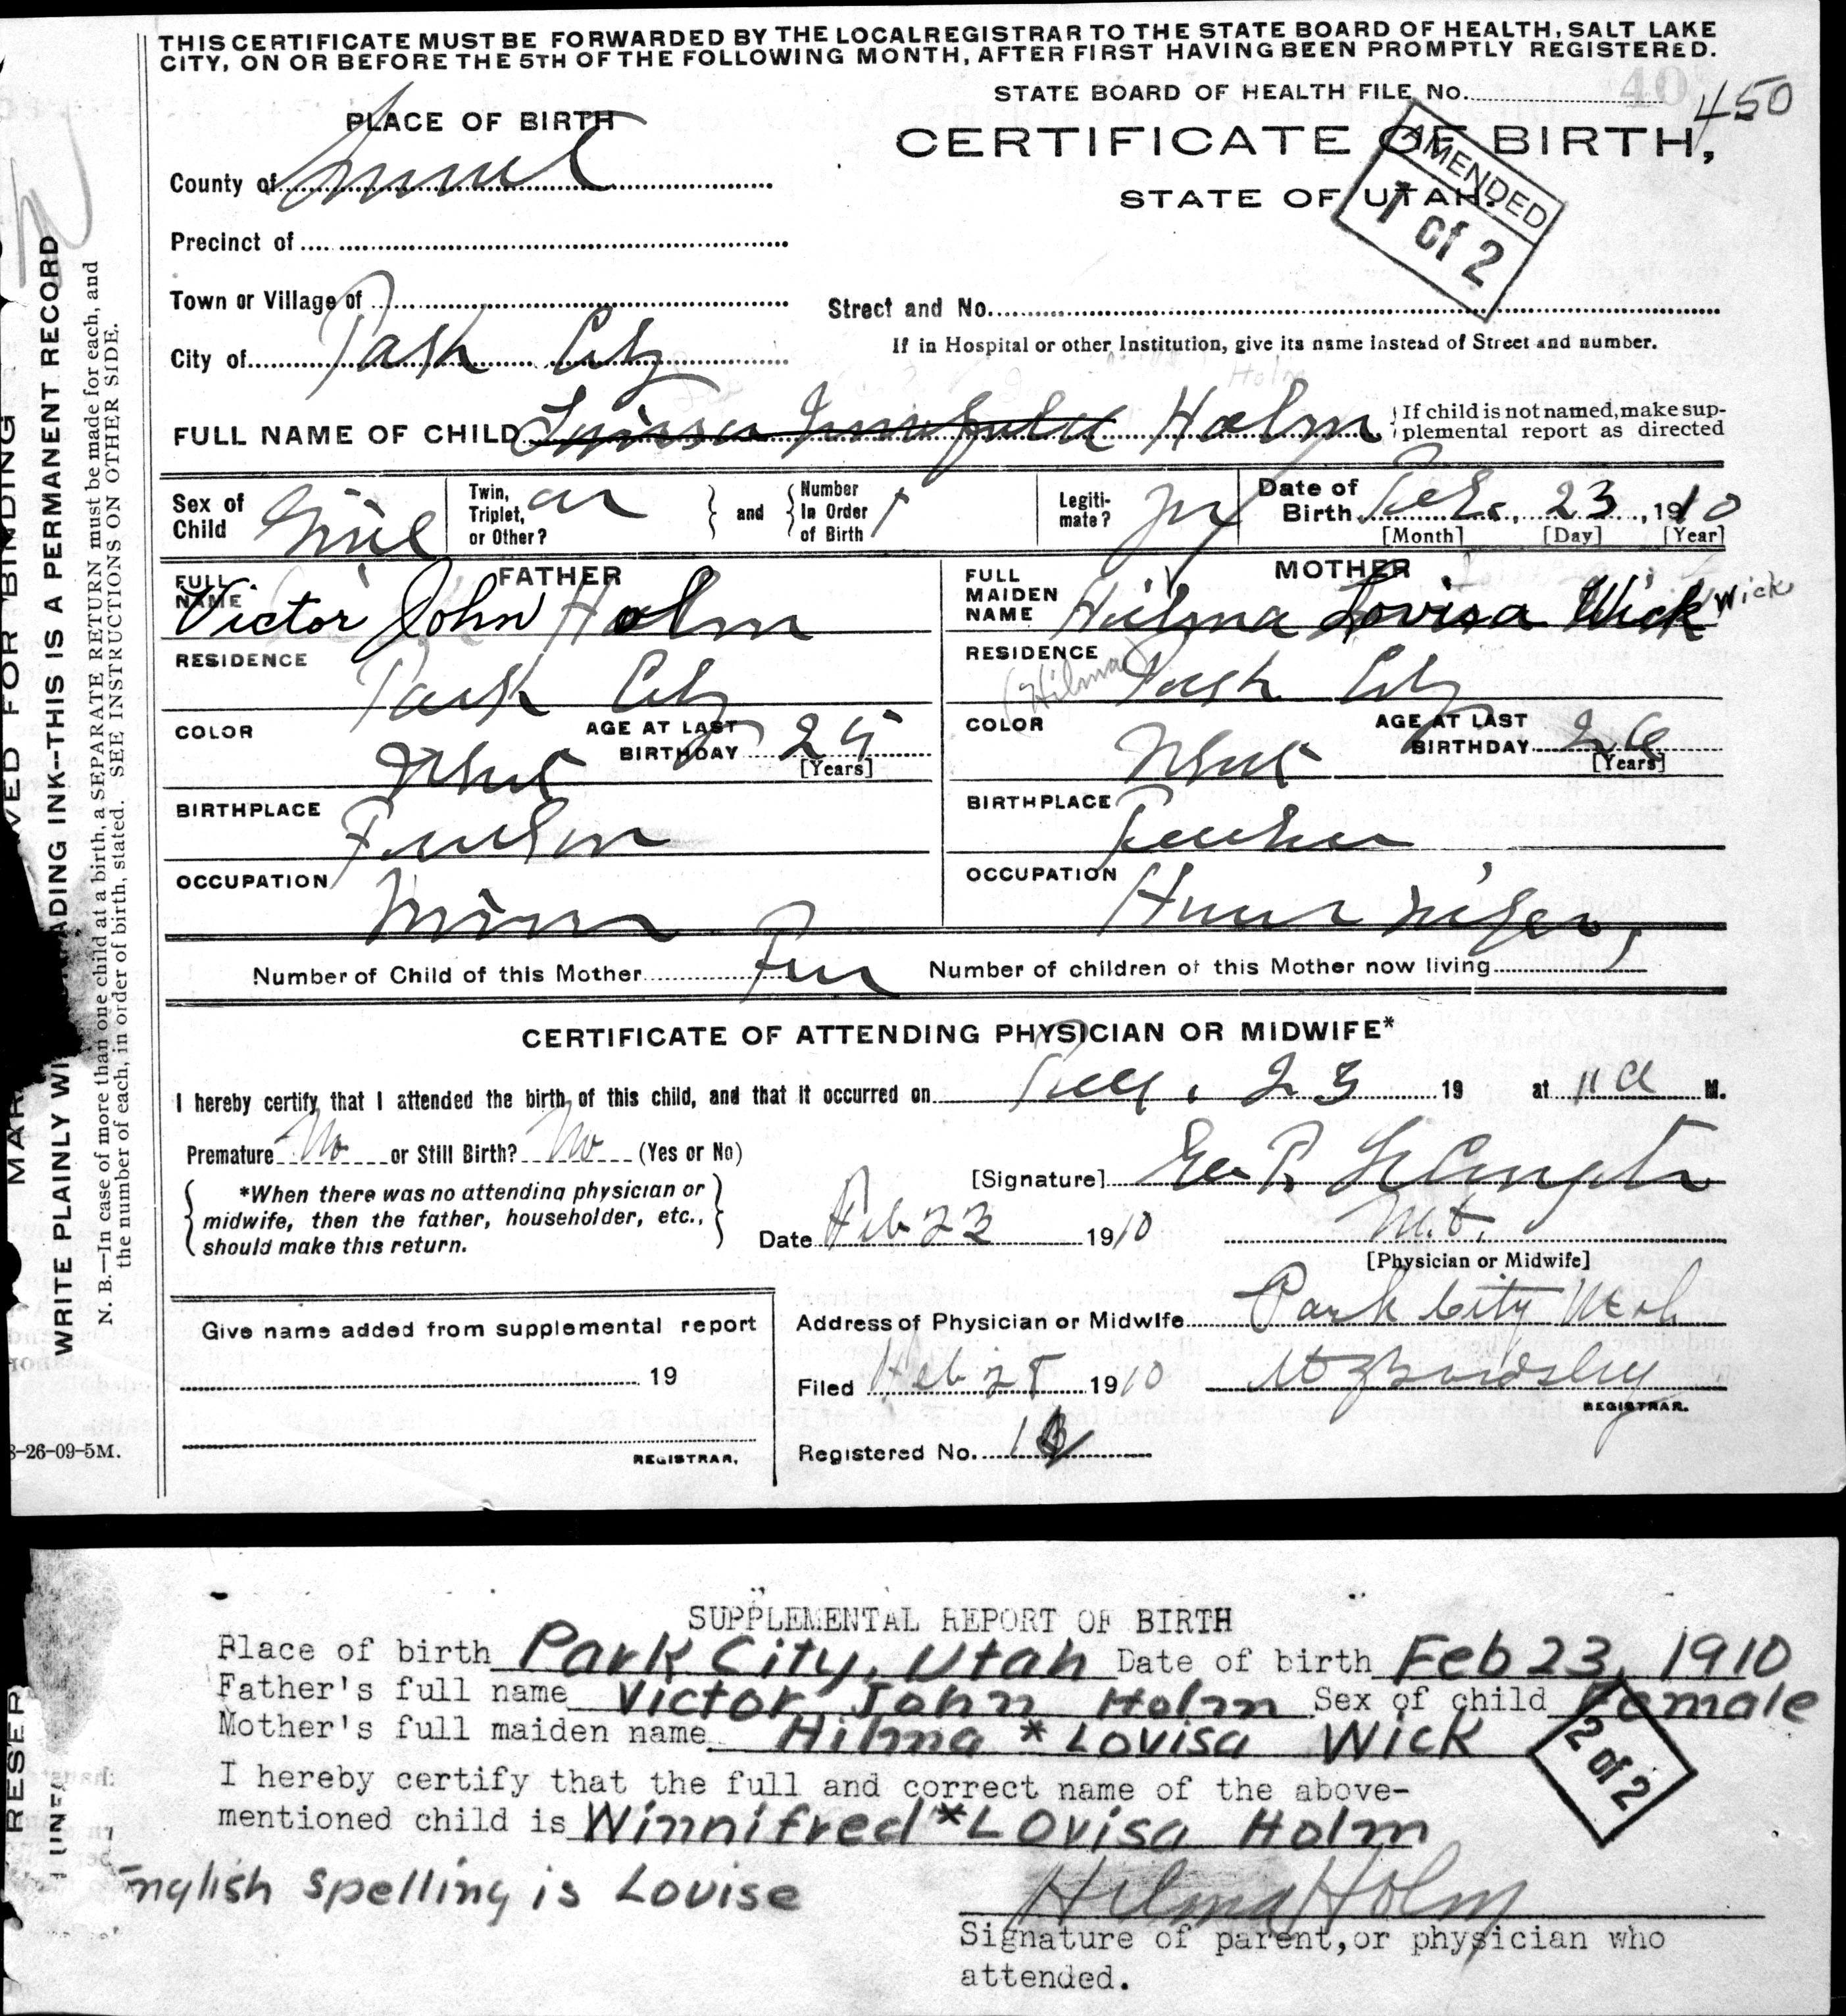 THIS CERTIFICATE MUST BE FORWARDED BY THE LOCAL REGISTRAR TO THE STATE BOARD OF HEALTH, SALT LAKE
CITY, ON OR BEFORE THE 5TH OF THE FOLLOWING MONTH, AFTER FIRST HAVING BEEN PROMPTLY REGISTERED.
STATE BOARD OF HEALTH FILE No. 450
PLACE OF BIRTH
CERTIFICATE OF BIRTH,
STATE OF UTAH.
AMENDED
1 of 2
County of Summit
Precinct of
Town or Village of
Street and No.
City of Park City
If in Hospital or other Institution, give its name instead of Street and number.
Holm
FULL NAME OF CHILD Holm
If child is not named, make sup-
plemental report as directed
Sex of Child Girl
Twin, Triplet, or Other?
and
Number In Order of Birth 1
Legiti-mate?
Date of Birth Feb. 23, 1910
[Month] [Day] [Year]
FATHER
FULL NAME Victor John Holm
MOTHER
FULL MAIDEN NAME Hilma Lovisa Wick Wick
RESIDENCE Park City
RESIDENCE Park City
(Hilma)
COLOR White
AGE AT LAST BIRTHDAY
[Years]
COLOR White
AGE AT LAST BIRTHDAY 26
[Years]
BIRTHPLACE
BIRTHPLACE
OCCUPATION Miner
OCCUPATION
Number of Child of this Mother
Number of children of this Mother now living 1
CERTIFICATE OF ATTENDING PHYSICIAN OR MIDWIFE*
I hereby certify that I attended the birth of this child, and that it occurred on 23 19 at 11 a M.
Premature No or Still Birth? No (Yes or No)
[Signature]
*When there was no attending physician or
midwife, then the father, householder, etc.,
should make this return.
Date Feb 23 1910
[Physician or Midwife]
Give name added from supplemental report
Address of Physician or Midwife Park City Utah
19
Filed Feb 28 1910
REGISTRAR.
Registered No.
REGISTRAR.
8-26-09-5M.
WRITE PLAINLY WI ADING INK--THIS IS A PERMANENT RECORD
N. B.—In case of more than one child at a birth, a SEPARATE RETURN must be made for each, and
the number of each, in order of birth, stated. SEE INSTRUCTIONS ON OTHER SIDE.
MAR VED FOR BINDING
SUPPLEMENTAL REPORT OF BIRTH
Place of birth Park City, Utah Date of birth Feb 23, 1910
Father's full name Victor John Holm Sex of child Female
Mother's full maiden name Hilma * Lovisa Wick
2 of 2
I hereby certify that the full and correct name of the above-
mentioned child is Winnifred *Lovisa Holm
English spelling is Louise
Hilma Holm
Signature of parent, or physician who
attended.
RESER